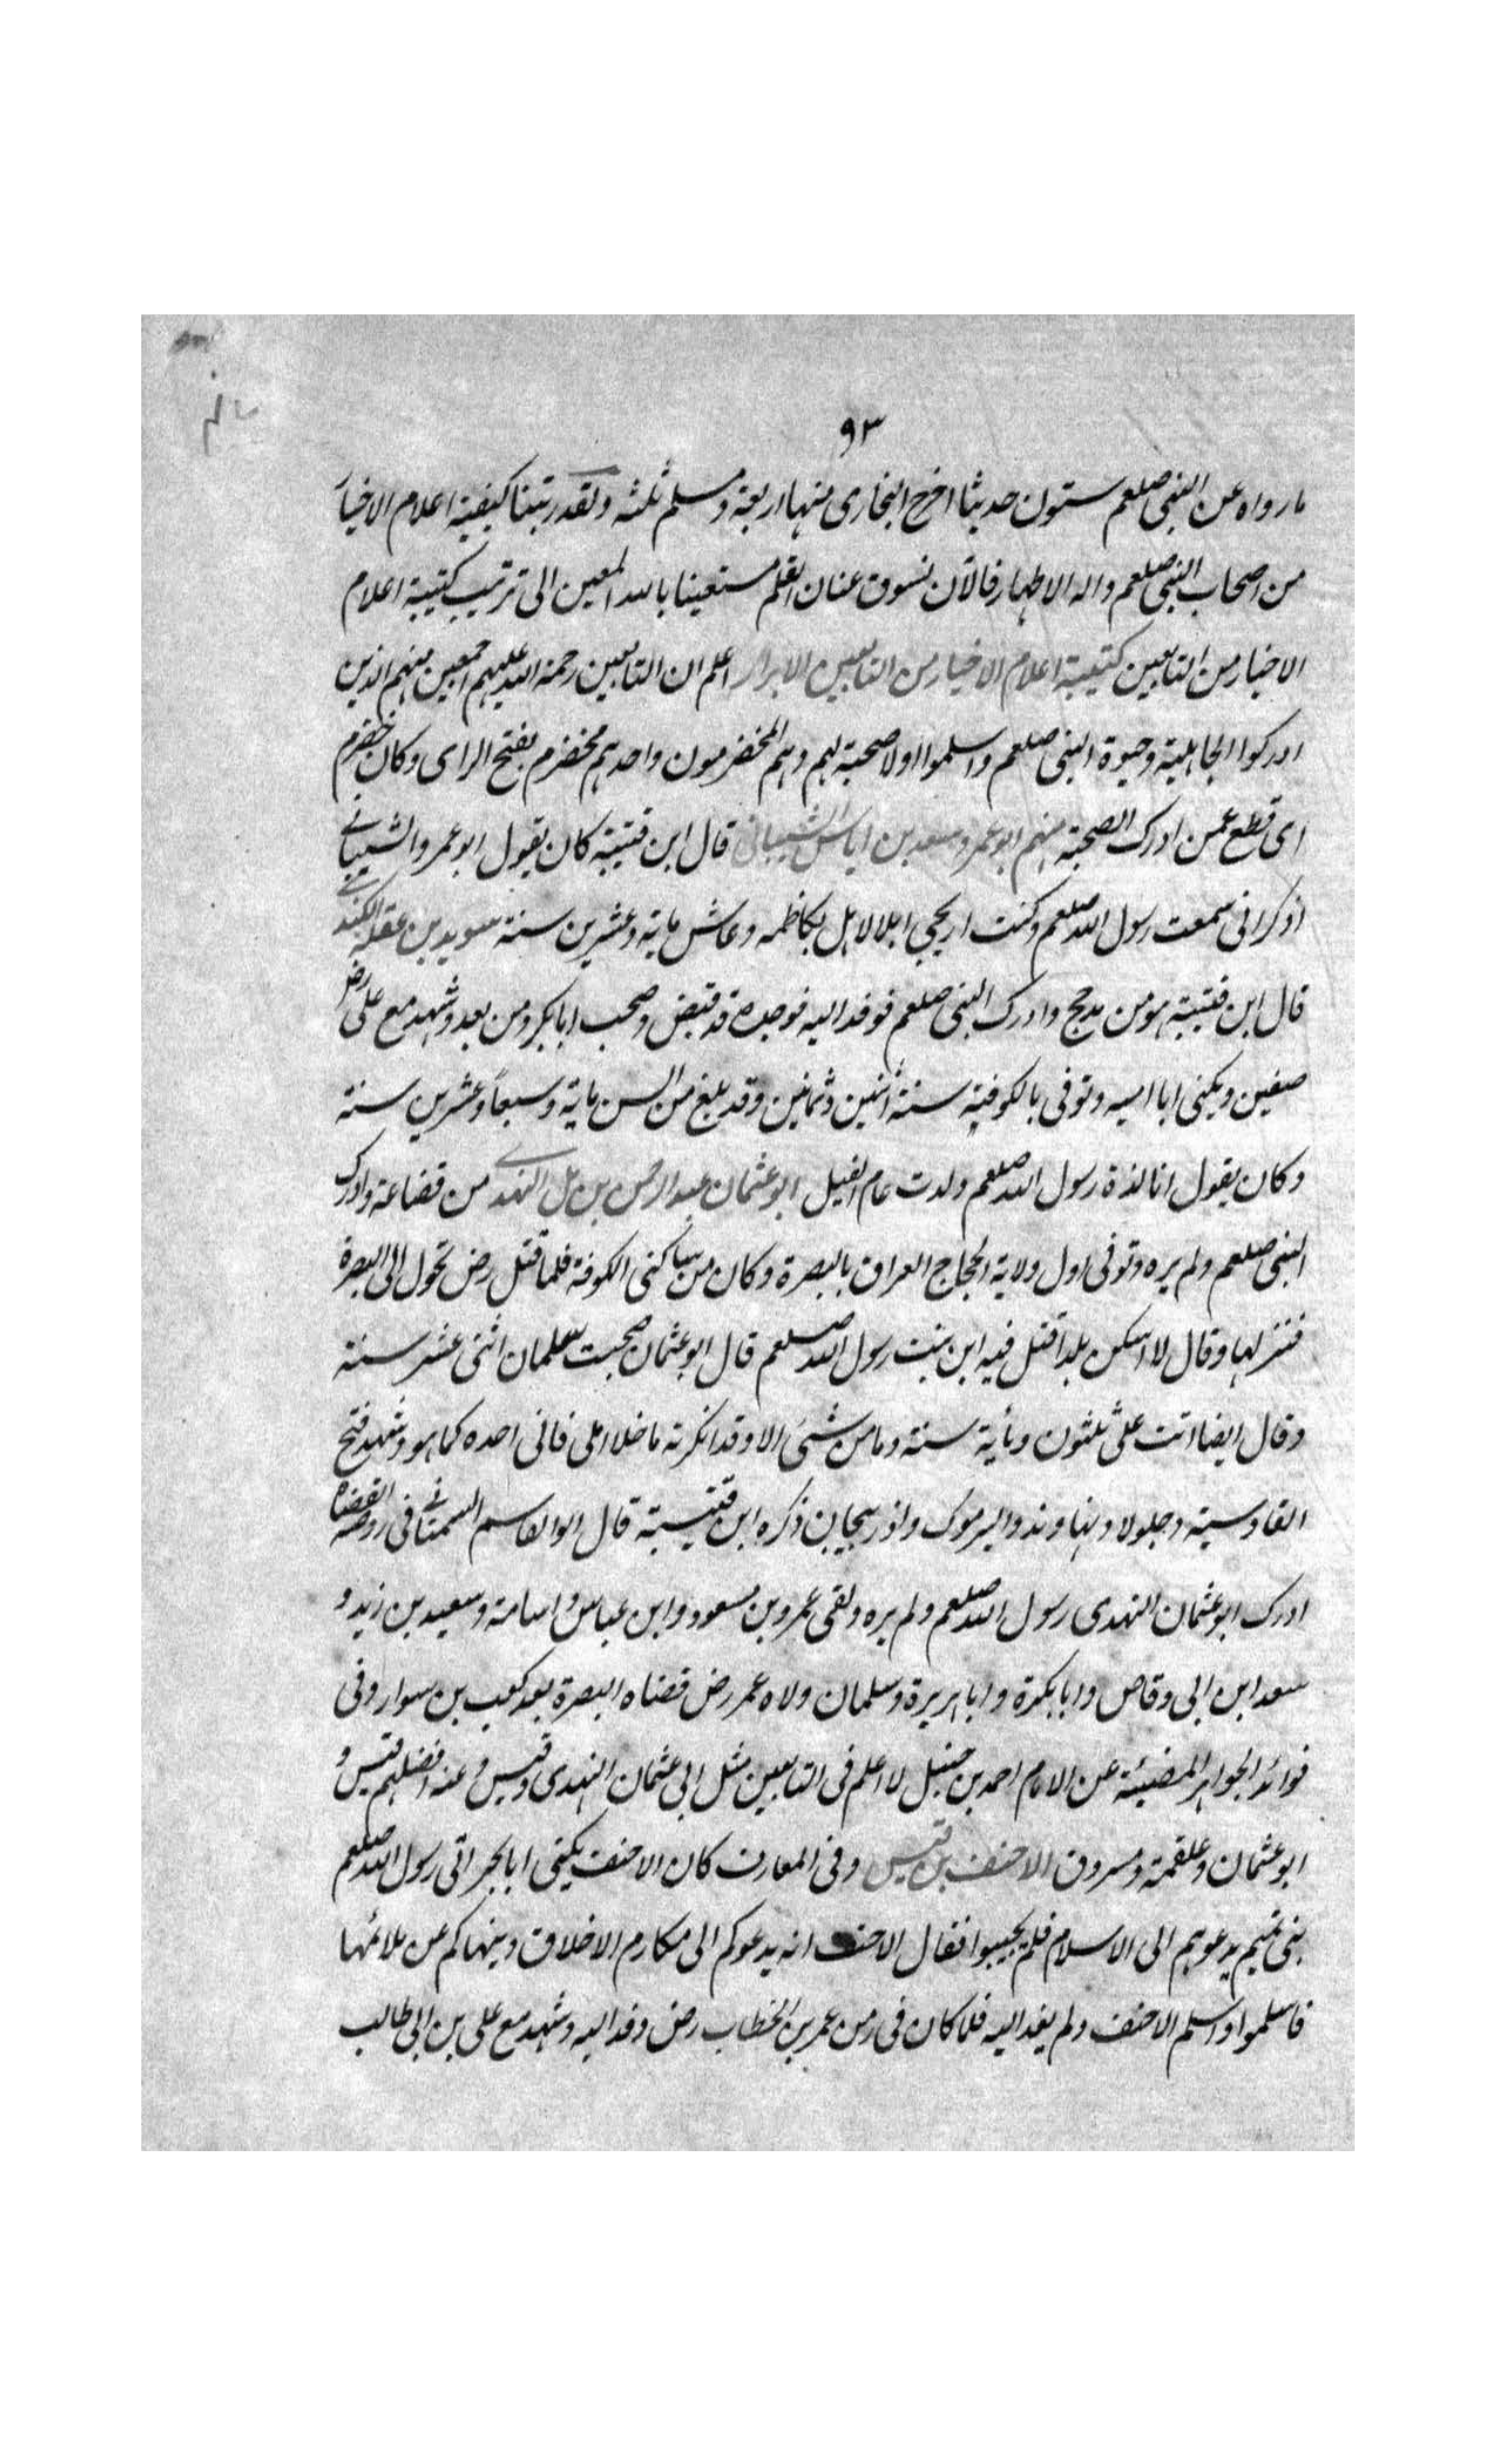 ٩٣
ما رواه عن النبى صلعم ستون حديثا اخرج البخارى منها اربعة ومسلم ثلثه ولقد رتبنا كيفية اعلام الاخيا
من اصحاب النبى صلعم واله الاطهار فالآن نسوق عنان القلم مستعينا بالله المعين الى ترتيب كتيبة اعلام
الاخيار من التابعين كتيبة اعلام الاخيار من التابعين الابرار اعلم ان التابعين رحمة الله عليهم اجمعين منهم الذين
ادركوا الجاهلية وحيوة النبى صلعم واسلموا اولا صحبة لهم وهم المخضرمون واحدهم مخضرم بفتح الراى وكان خضرم
اى قطع عمن ادرك الصحبة منهم ابو عمرو سعد بن اياس الشيبانى قال ابن قتيبة كان يقول ابو عمرو الشيبانے
اذكر انى سمعت رسول الله صلعم وكنت ارعى ابلا لاهل بكاظمه وعاش ماية وعشرين سنة سويد بن غفلة الكندے
قال ابن قتيبة هو من مدحج وادرك النبى صلعم فوفد اليه فوجده قد قبض وصحب ابا بكر ومن بعد وشهد مع على رض
صفين ويكنى ابا اميه وتوفى بالكوفية سنة اثنين وثمانين وقد بلغ من السن ماية وسبعاً وعشرين سنة
وكان يقول انا لذة رسول الله صلعم ولدت عام الفيل ابو عثمان عبد الرحمن بن مل النهدے من قضاعة وادرك
النبى صلعم ولم يره وتوفى اول ولاية الحجاج العراق بالبصرة وكان من ساكنى الكوفة فلما قتل رض تحول الى البصرة
فنزلها وقال لا اسكن بلدا قتل فيه ابن بنت رسول الله صلعم قال ابو عثمان صحبت سلمان اثنى عشر سنة
وقال ايضا اتت علىّ ثلثون ومأية سنة وما من شئ الا وقد انكرته ما خلا املى فانى احده كما هو وشهد فتح
القادسية وجلولا ونهاوند واليرموك واذربيجاين ذكره ابن قتيبة قال ابو القاسم السمنانے فى روضة القضاه
ادرك ابو عثمان النهدى رسول الله صلعم ولم يره ولقى عمر وبن مسعود وابن عباس واسامة وسعيد بن زيد و
سعد ابن ابى وقاص وابا بكرة وابا هريرة وسلمان ولاه عمر رض قضاه البصرة بعد كعب بن سوار وفى
فوائد الجواهر المضيئة عن الامام احمد بن حنبل لا اعلم فى التابعين مثل ابى عثمان النهدى وقيس وعنه افضلهم قيس و
ابو عثمان وعلقمة ومسروق الاحنف بن قيس وفى المعارف كان الاحنف يكنى ابا بحر اتى رسول الله صلعم
بنى تميم يدعوهم الى الاسلام فلم يجيبوا فقال الاحنف انه يدعوكم الى مكارم الاخلاق وينهاكم عن ملائمها
فاسلموا واسلم الاحنف ولم يفد اليه فلما كان فى زمن عمر بن الخطاب رض وفد اليه وشهد مع على بن ابى طالب